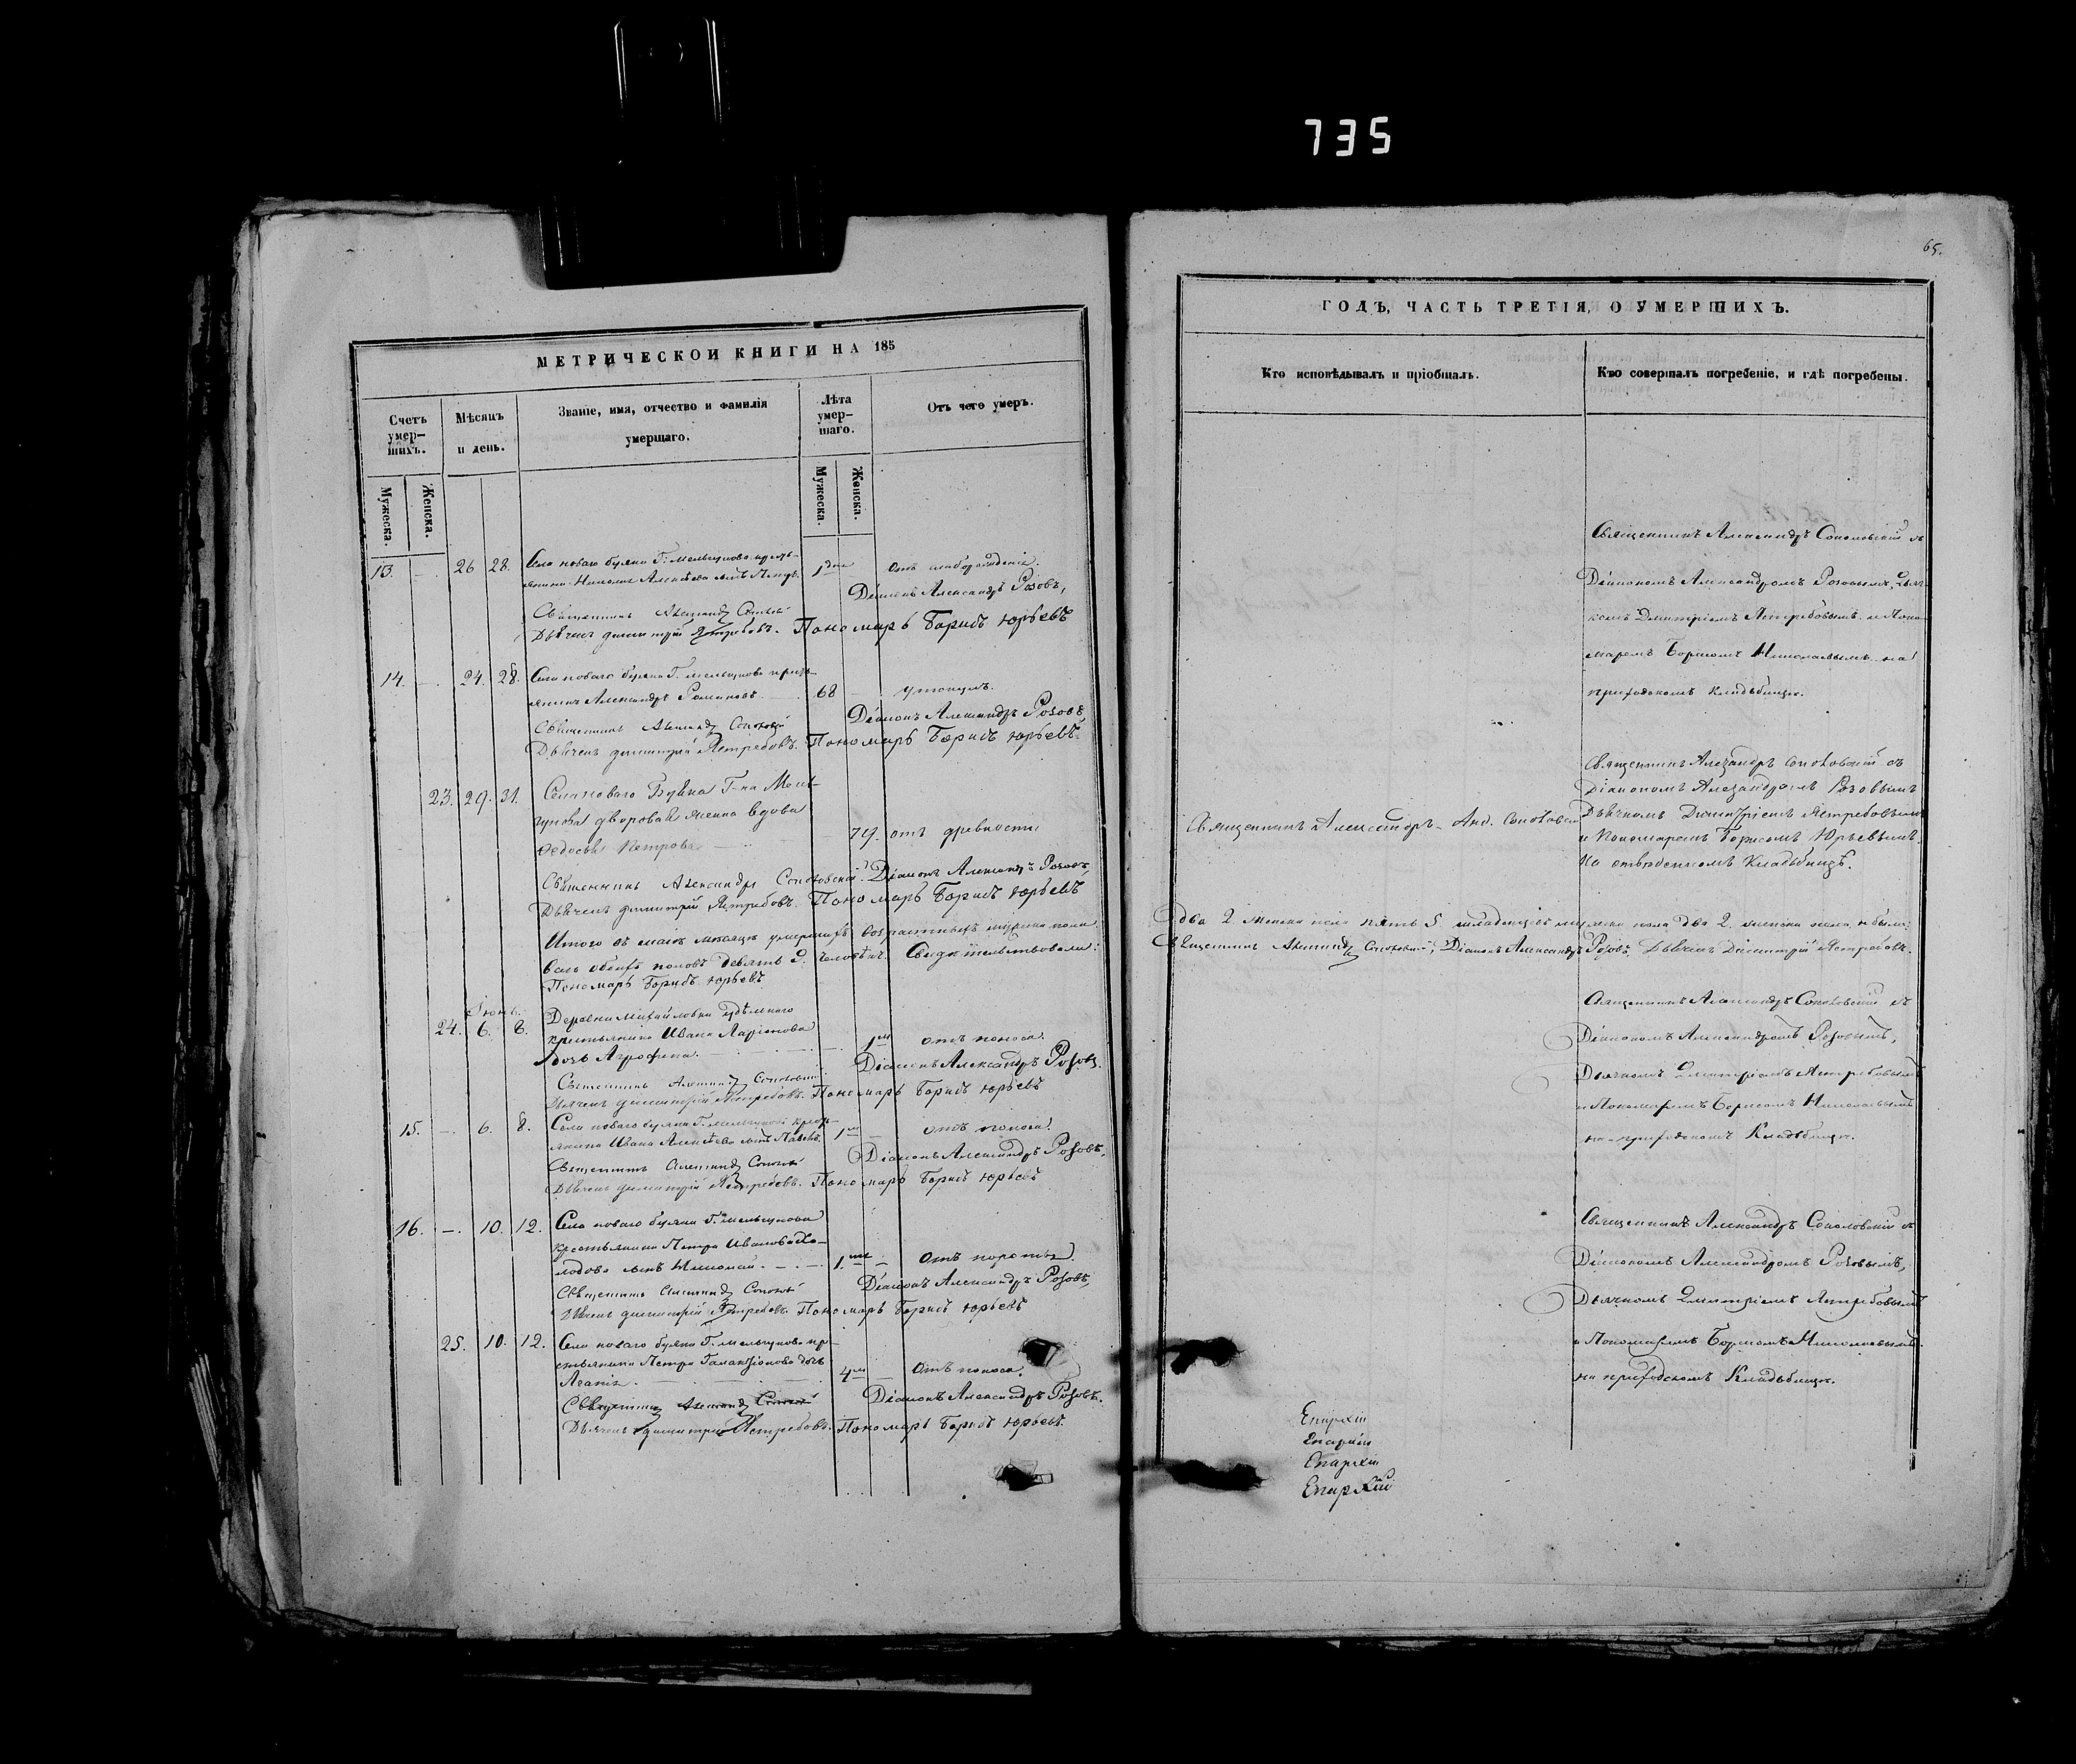 735
65.
МЕТРИЧЕСКОЙ КНИГИ НА 185
Счетъ умер-шихъ.
Мѣсяцъ и день.
Званіе, имя, отчество и фамилія умершаго.
Лѣта умер-шаго.
Отъ чего умеръ.
Мужеска.
Женска.
Мужеска.
Женска.
13. — 26 28. Села новаго буяна Г. Мельгунова кресть-
янина Николая Алексѣева сынъ Петръ. 1 дня отъ слаборожденія.
Діаконъ Александръ Розовъ,
Священникъ Александръ
Дьячекъ Димитрій Ястребовъ. Пономарь Борисъ Юрьевъ
14. — 24. 28. Села новаго буяна Г. Мельгунова кресть-
янинъ Александръ Романовъ 68 — утонулъ.
Діаконъ Александръ Розовъ,
Священникъ Александръ Соколовскій
Дьячекъ Димитрій Ястребовъ. Пономарь Борисъ Юрьевъ
23. 29. 31. Села новаго Буяна Г-на Мель-
гунова дворовая женка вдова
Ѳедосья Петрова 79. отъ древности
Священникъ Александръ Соколовскій. Діаконъ Александръ Розовъ,
Дьячекъ Димитрій Ястребовъ. Пономарь Борисъ Юрьевъ
Итого въ маіѣ мѣсяцѣ умершихъ возрастныхъ мужска пола
всего обоихъ половъ девять 9. человѣкъ. Свидѣтельствовали:
Пономарь Борисъ Юрьевъ
Іюнь.
24. 6. 8. Деревни Михайловки удѣльнаго
крестьянина Ивана Ларіонова
дочь Агрофена. 1 отъ поноса.
Діаконъ Александръ Розовъ.
Священникъ Александръ Соколовскій
Дьячекъ Димитрій Ястребовъ. Пономарь Борисъ Юрьевъ
15. — 6. 8. Села новаго буяна Г. Мельгунова крес-
янина Ивана Алексѣева сынъ Павелъ. 1 — отъ поноса.
Діаконъ Александръ Розовъ,
Священникъ Александръ
Дьячекъ Димитрій Ястребовъ. Пономарь Борисъ Юрьевъ
16. — 10. 12. Села новаго буяна Г. Мельгунова
крестьянина Петра Иванова
сынъ Николай. 1. —
Діаконъ Александръ Розовъ,
Священникъ Александръ
Дьячекъ Димитрій Ястребовъ. Пономарь Борисъ Юрьевъ
25. 10. 12. Села новаго буяна Г. Мельгунова кре-
стьянина Петра Галактіонова дочь
4 отъ поноса.
Діаконъ Александръ Розовъ.
Священникъ Александръ
Дьячекъ Димитрій Ястребовъ. Пономарь Борисъ Юрьевъ.
ГОДЪ, ЧАСТЬ ТРЕТІЯ, О УМЕРШИХЪ.
Кто исповѣдывалъ и пріобщалъ.
Кто совершалъ погребеніе, и гдѣ погребены.
Священникъ Александръ Соколовскій съ
Діакономъ Александромъ Розовымъ, Дьяч-
комъ Димитріемъ Ястребовымъ и Поно-
маремъ Борисомъ Николаевымъ на
приходскомъ кладбищѣ.
Священникъ Александръ Соколовскій съ
Діакономъ Александромъ Розовымъ
Священникъ Александръ Соколовскій
Дьячкомъ Димитріемъ Ястребовымъ
и Пономаремъ Борисомъ Юрьевымъ
На отведенномъ Кладбищѣ.
два 2 женска пола пять 5 младенцовъ мужска пола два 2. женска пола небыло:
Священникъ Александръ Соколовскій, Діаконъ Александръ Розовъ, Дьячекъ Димитрій Ястребовъ.
Священникъ Александръ Соколовскій съ
Діакономъ Александромъ Розовымъ,
Дьячкомъ Димитріемъ Ястребовымъ
и Пономаремъ Борисомъ Николаевымъ
на приходскомъ Кладбищѣ.
Священникъ Александръ Соколовскій съ
Діакономъ Александромъ Розовымъ,
Дьячкомъ Димитріемъ Ястребовымъ
и Пономаремъ Борисомъ Николаевымъ
на приходскомъ Кладбищѣ.
Епархіи
Епархіи
Епархіи
Епархіи